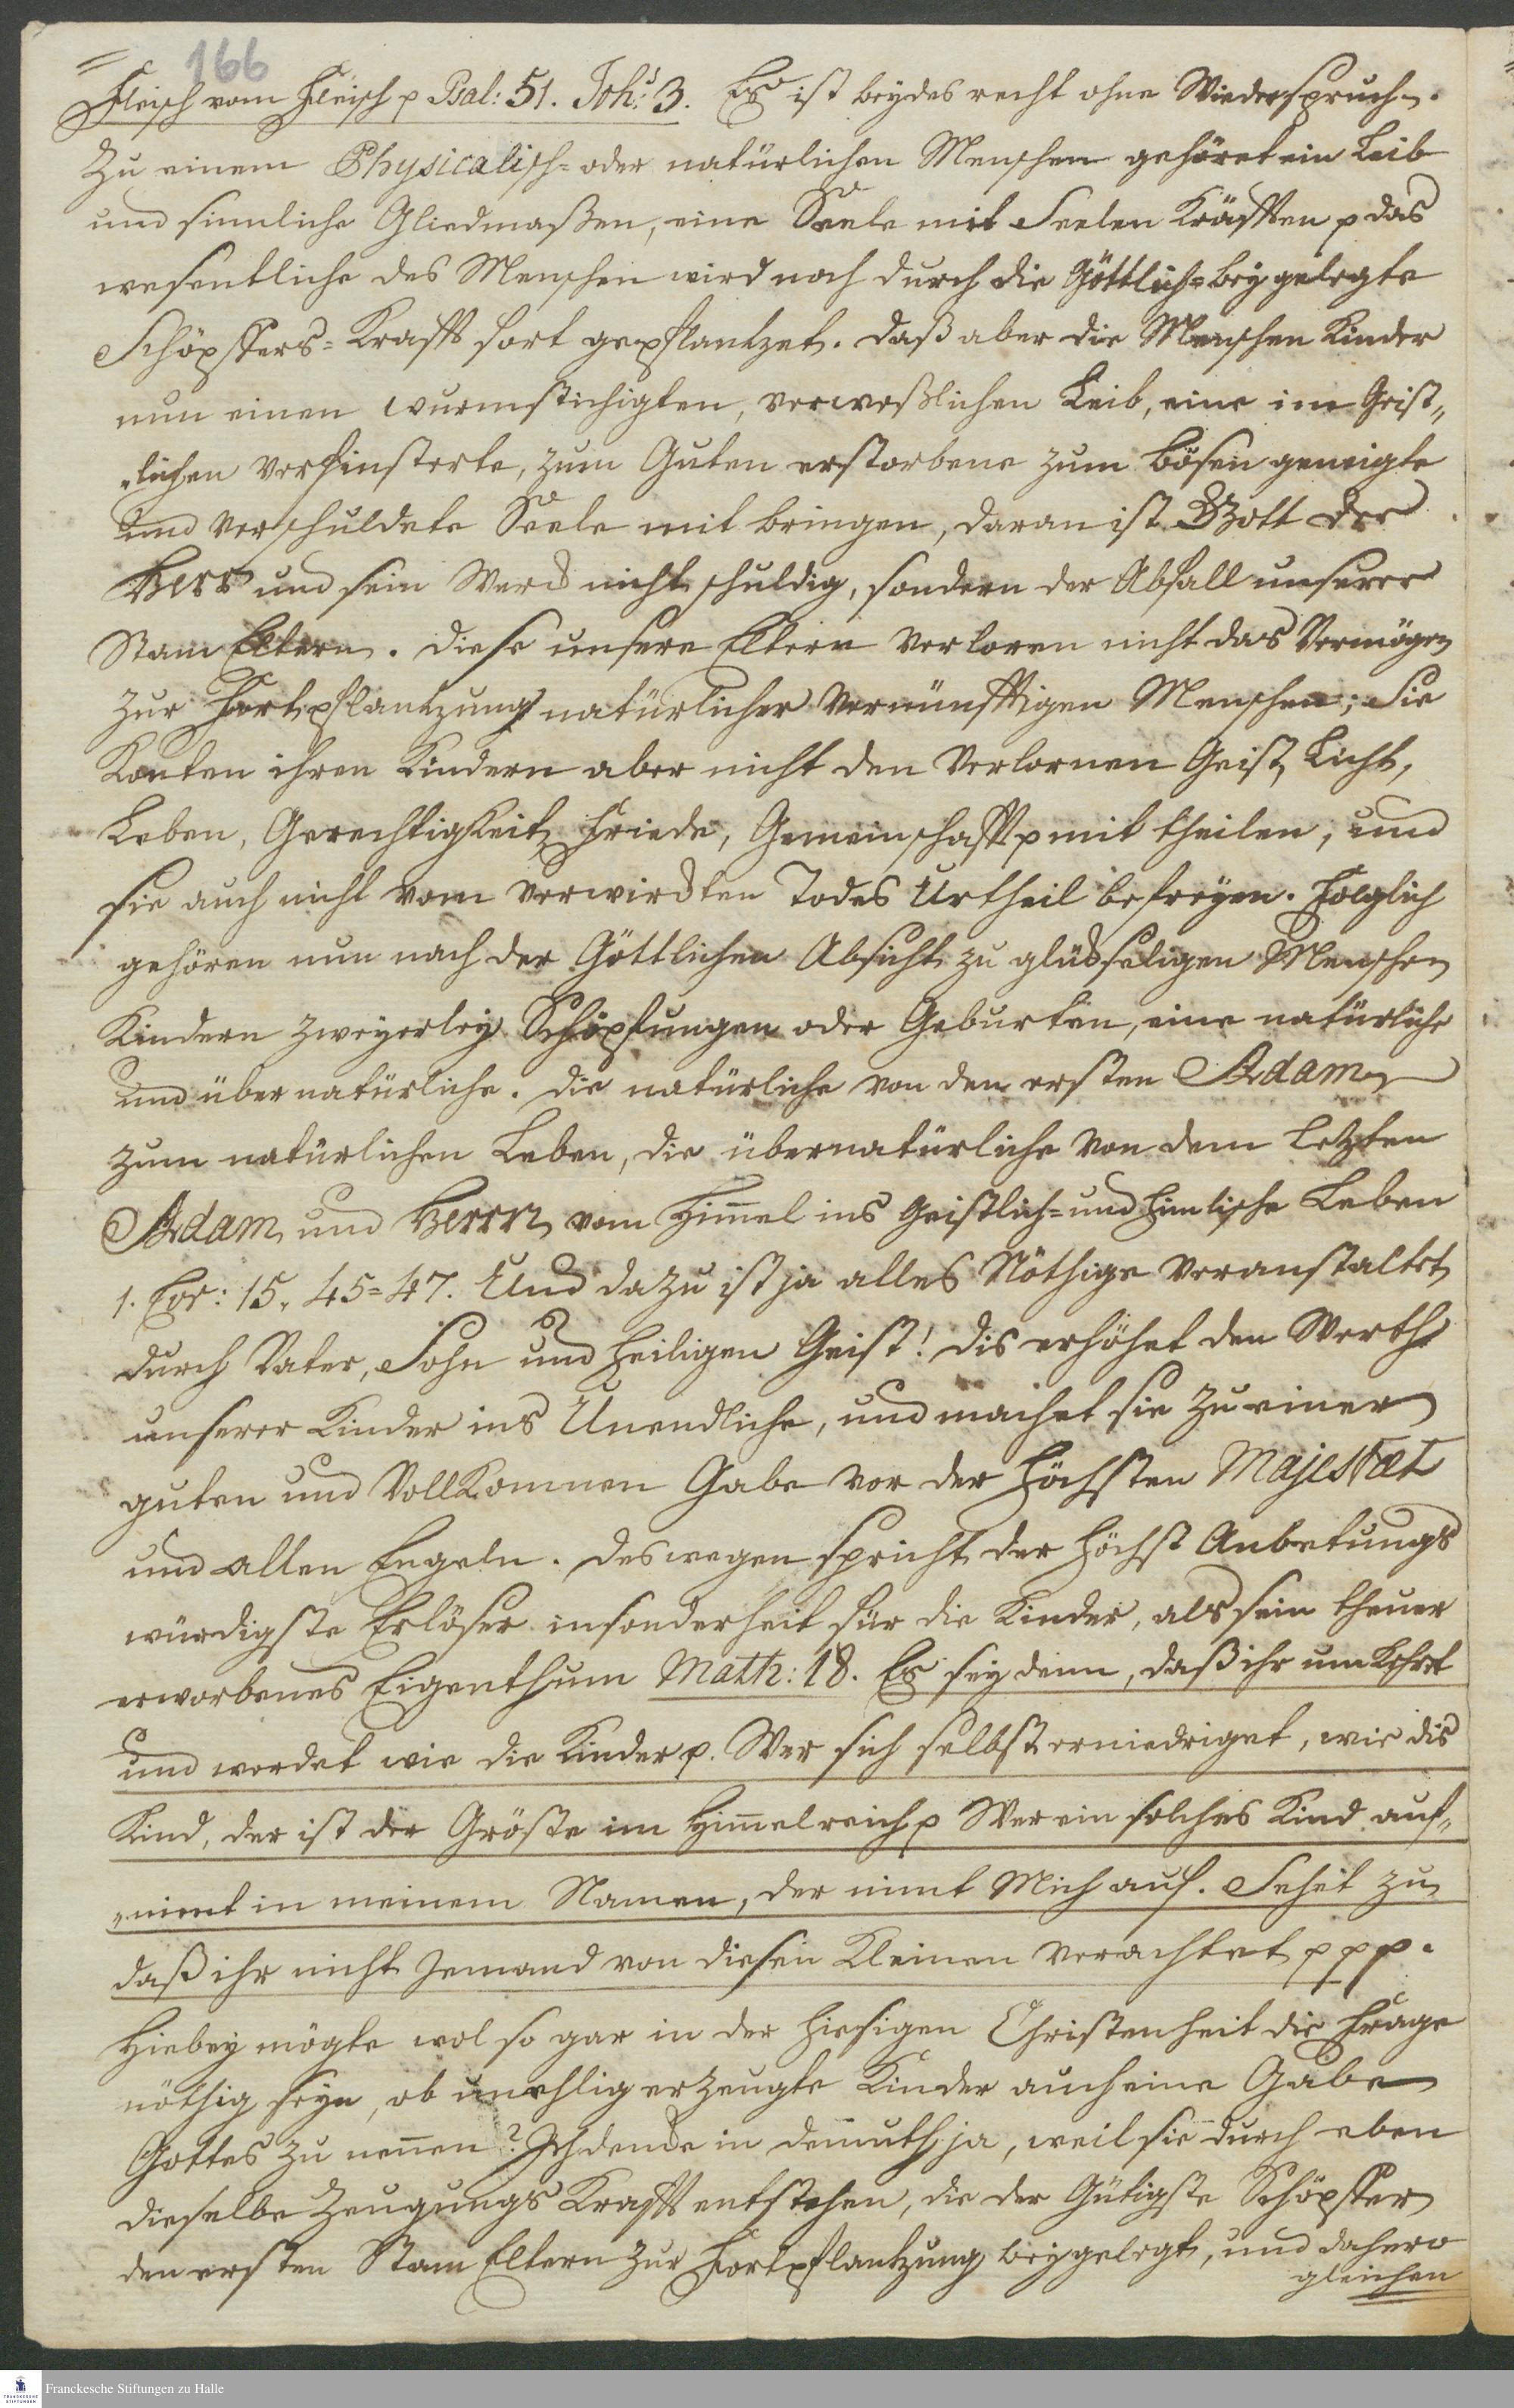 166
Fleisch vom Fleisch p Psal: 51. Joh: 3. Es ist beydes recht ohne Wiederspruch.
Zu einem Physicalisch= oder natürlichen Menschen gehöret ein Leib
und sinnliche Gliedmaßen, eine Seele mit Seelen Kräfften p das
wesentliche des Menschen wird noch durch die Göttlich= beygelegte
Schöpffers= Krafft fort gepflantzet. Daß aber die Menschen Kinder
nun einen wurmstichigten, verweßlichen Leib, eine im Geist„
„lichen verfinsterte, zum Guten erstorbene zum bösen geneigte
und verschuldete Seele mit bringen, daran ist Gott der
Herr und sein Werck nicht schuldig, sondern der Abfall unserer
Stam Eltern. Diese unsere Eltern verloren nicht das Vermögen
zur Fortpflantzung natürlicher vernünfftigen Menschen; Sie
Konten ihren Kindern aber nicht den verlornen Geist, Licht,
Leben, Gerechtigkeit, Friede, Gemeinschafft p mit theilen, und
sie auch nicht vom verwirckten Todes Urtheil befreyen. Folglich
gehören nun nach der Göttlichen Absicht zu glückseligen Menschen
Kindern zweyerley Schöpfungen oder Geburten, eine natürliche
und übernatürliche. Die natürliche von dem ersten Adam
zum natürlichen Leben, die übernatürliche von dem letzten
Adam und Herrn vom Him̅el ins Geistlich= und himlische Leben
1. Cor: 15, 45=47. Und dazu ist ja alles Nöthige veranstaltet
durch Vater, Sohn und heiligen Geist! Dis erhöhet den Werth
unserer Kinder ins Unendliche, und machet sie zu einer
guten und VollKomnen Gabe vor der höchsten Majestæt
und allen Engeln. Deswegen spricht der höchst Anbetungs
würdigste Erlöser insonderheit für die Kinder, als sein theuer
erworbenes Eigenthum Math: 18. Es sey denn, daß ihr umkehret
und werdet wie die Kinder p. Wer sich selbst erniedriget, wie dis
Kind, der ist der Gröste im Him̅elreich p Wer ein solches Kind auf„
„nimt in meinem Namen, der nimt Mich auf. Sehet zu
daß ihr nicht Jemand von diesen Kleinen verachtet p p p.
Hiebey mögte wol so gar in der hiesigen Christenheit die Frage
nöthig seyn, ob unehlig erzeugte Kinder auch eine Gabe
Gottes zu nen̅en? Ich dencke in demuth ja, weil sie durch eben
dieselbe Zeugungs Krafft entstehen, die der Gütigste Schöpffer
den ersten Stam Eltern zur Fortpflantzung beygelegt, und dahero
gleichen
Franckesche Stiftungen zu Halle